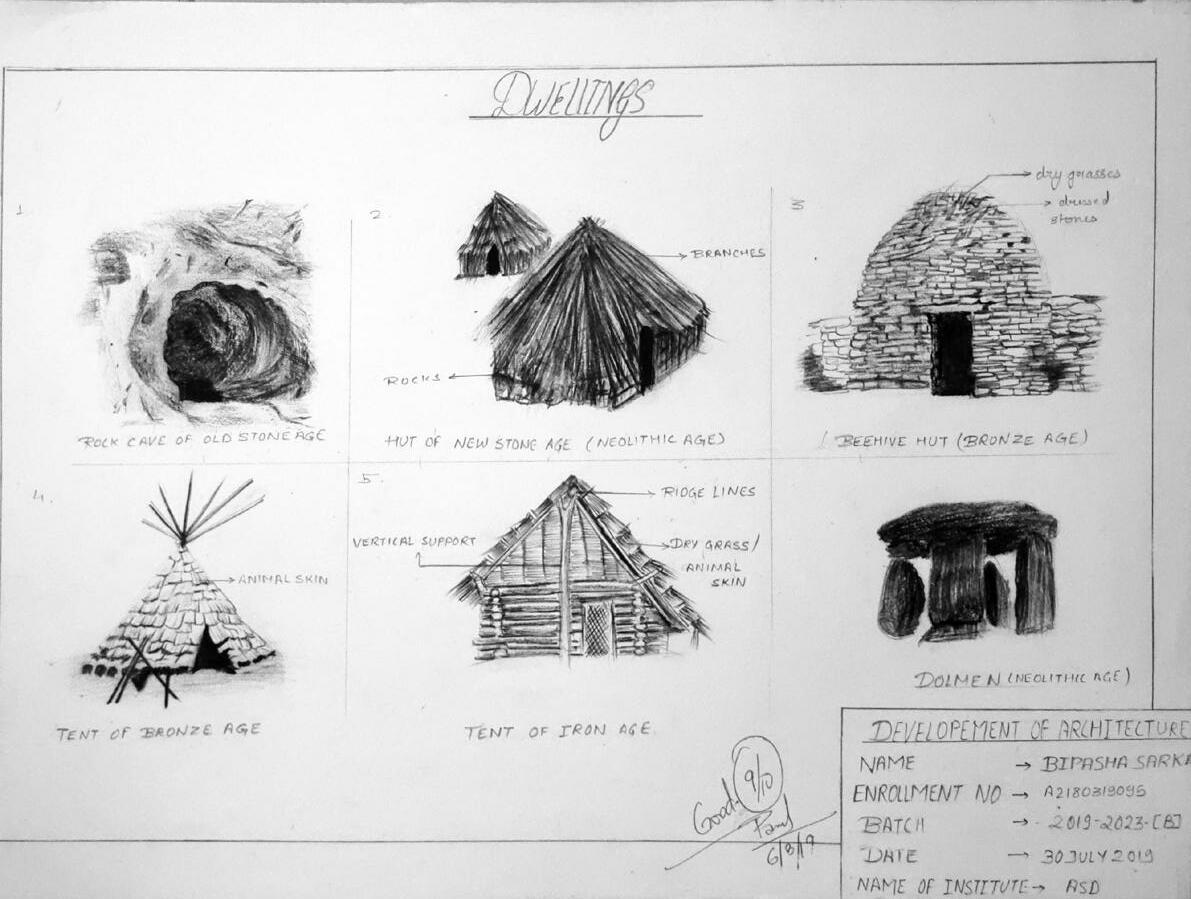 DWELLINGS
1.
2.
3
dry grasses
dressed
stones
BRANCHES
ROCKS
ROCK CAVE OF OLD STONE AGE
HUT OF NEW STONE AGE (NEOLITHIC AGE)
BEEHIVE HUT (BRONZE AGE)
4.
5.
RIDGE LINES
VERTICAL SUPPORT
DRY GRASS/
ANIMAL
SKIN
ANIMAL SKIN
DOLMEN (NEOLITHIC AGE)
TENT OF BRONZE AGE
TENT OF IRON AGE
Good 9/10
6/8/19
DEVELOPEMENT OF ARCHITECTURE
NAME → BIPASHA SARKA
ENROLLMENT NO → A2180319095
BATCH → 2019-2023-[B]
DATE → 30 JULY 2019
NAME OF INSTITUTE → ASD